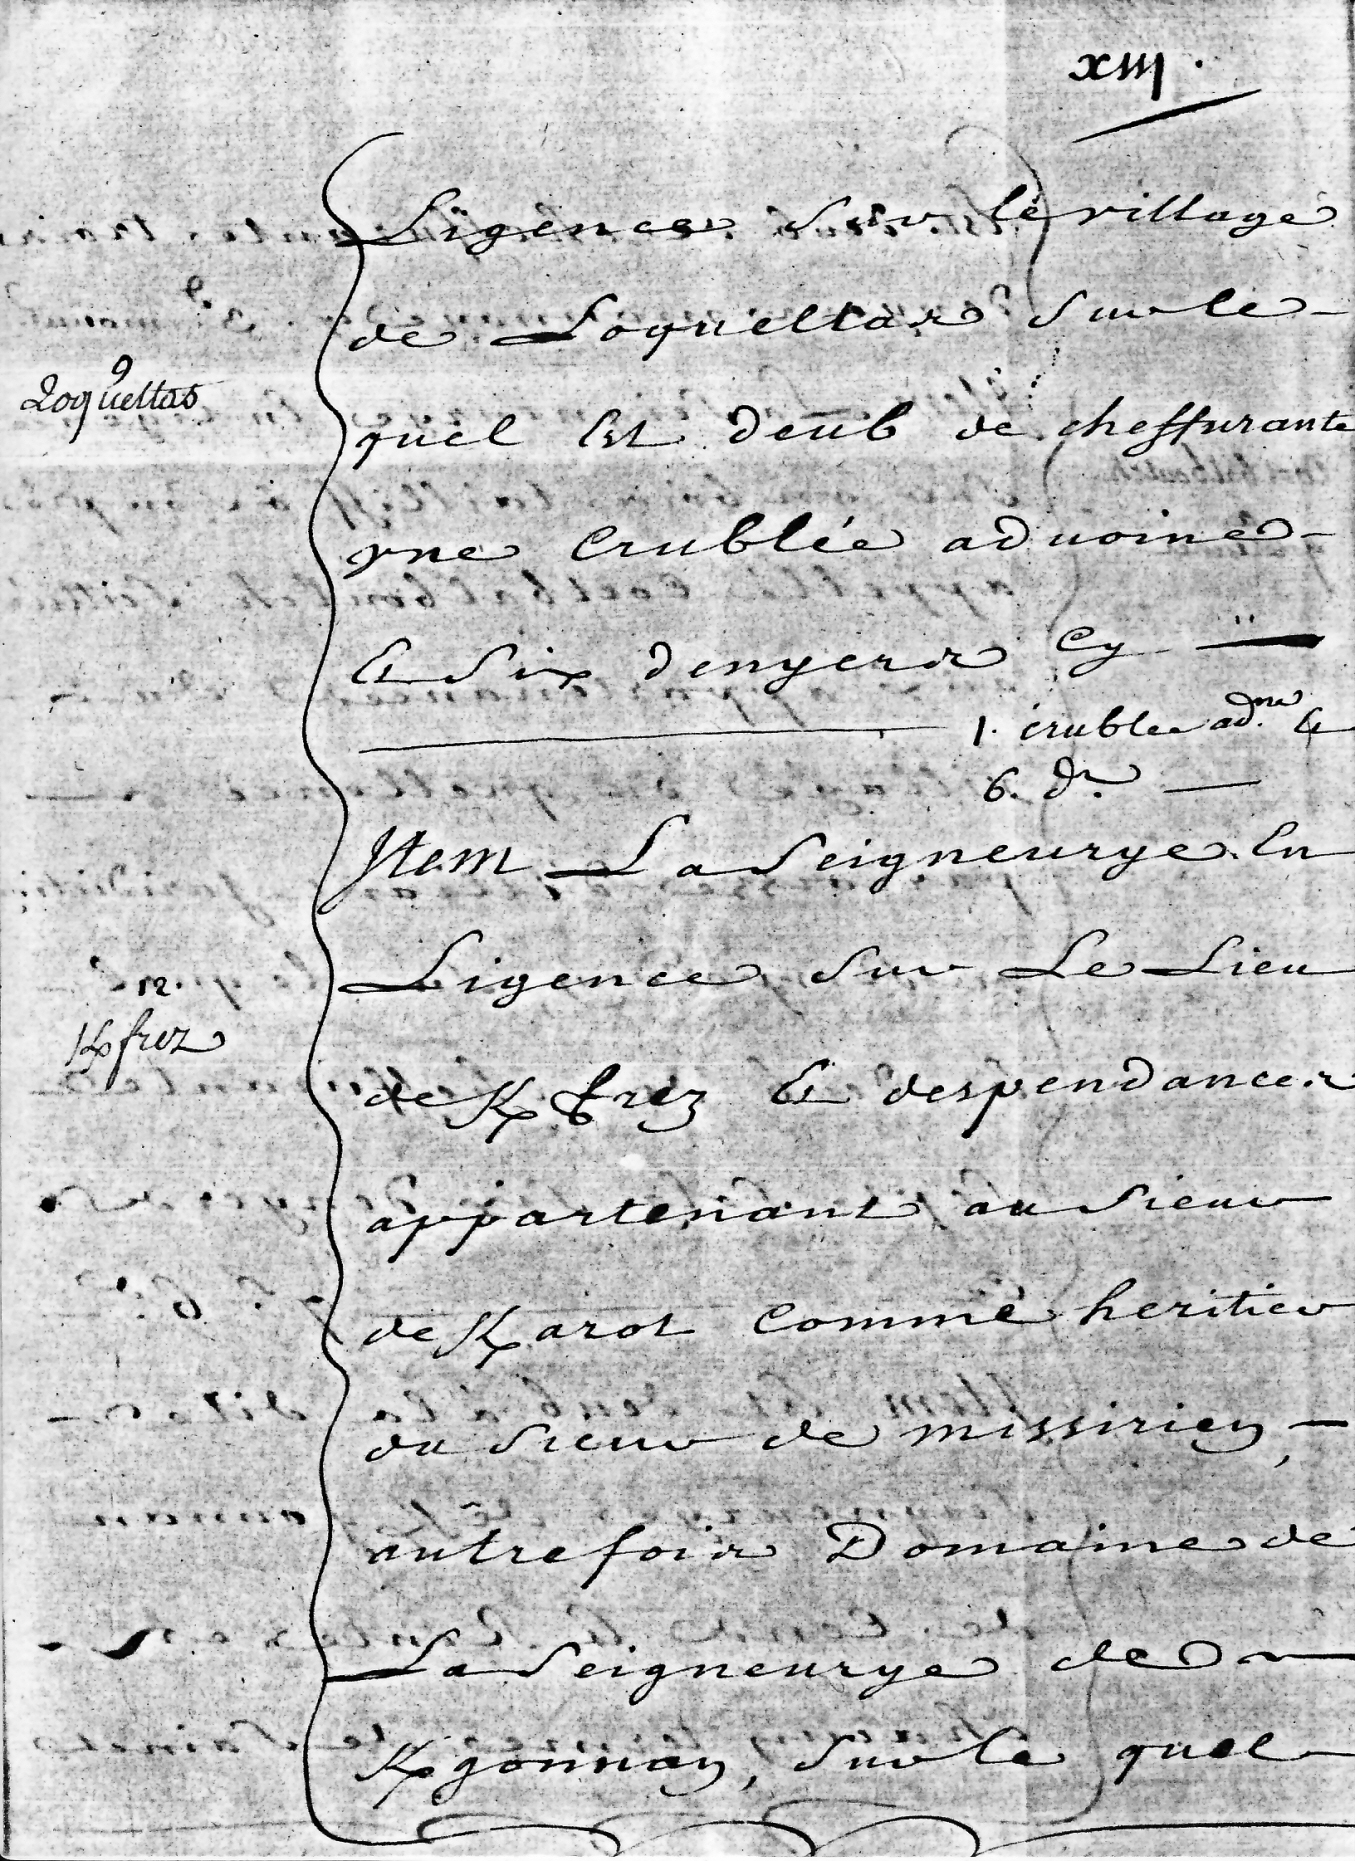 xiii.
Ligence sur le village
de Loqueltas sur le-
9
Loqueltas
quel Est deub de cheffurante
vne Crublée aduoine-
Et Six denyers Cy
1. crublee adne &
6. dr.
Item La Seigneurye En
Ligence Sur Le Lieu
12.
K/frez
de K/ frez Et despendances
appartenant au Sieur
de K/arot Comme heritier
du Sieur de missirien,-
autrefois Domaine de
La Seigneurye de
K/gonnan, Sur le quel